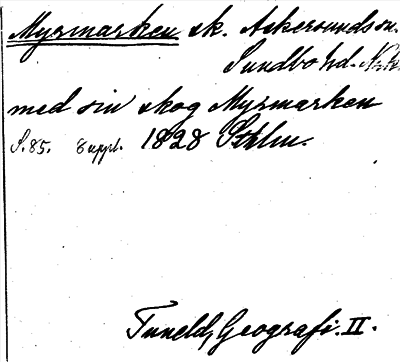 Myrmarken sk. Askersunds sn.
Sundbo hd. Nrk.
med sin skog Myrmarken
S. 85. Suppl. 1828 Sthlm.
Tuneld, Geografi. II.